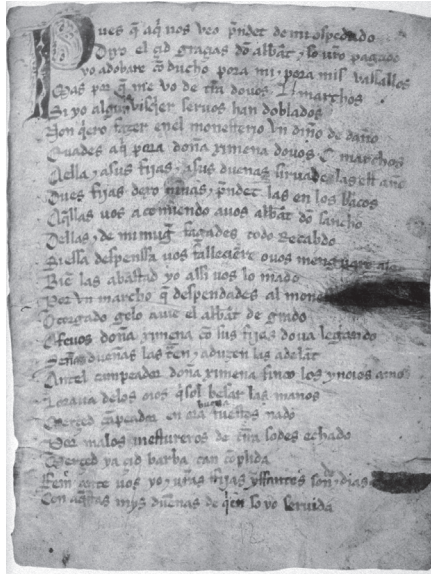 Pues q̃ aq̃ uos veo p̃ndet de mi ospedado
Dixo el çid graçias dõ abbat & so ur̃o pagado
yo adobare cõducho pora mi & pora mis vassallos
Mas por q̃ me vo de tr̃ra douos L marchos
Si yo algun visq̃er seruos han doblados
Non q̃ero fazer enel monesterio vn diño de daño
Euades aq̃ pora doña ximena douos C marchos
Aella & asus fijas & asus duenas siruades las est año
Dues fijas dexo niñas & p̃ndet las en los braços
Aq̃llas uos acomiendo auos abbat dõ sancho
Dellas & de mi mug̃ fagades todo recabdo
Si essa despenssa uos falleçiere o uos menguare algo
Biẽ las abastad yo assi uos lo mãdo
Por vn marcho q̃ despendades al mone
Otorgado gelo auie el abbat de grado
Afeuos doña ximena cõ sus fijas do ua legando
Señas dueñas las traẽ & aduzen las adelãt
Antel campeador doña ximena finco los ynoios amos
Loraua delos oios q̃sol besar las manos
Merced cãpeador en ora buena fuestes nado
Por malos mestureros de tr̃ra sodes echado
Merced ya çid barba tan cõplida
Fem ante uos yo & ur̃as fijas yffantes son & dias
Con aq̃stas mys dueñas de q̃en so yo seruida